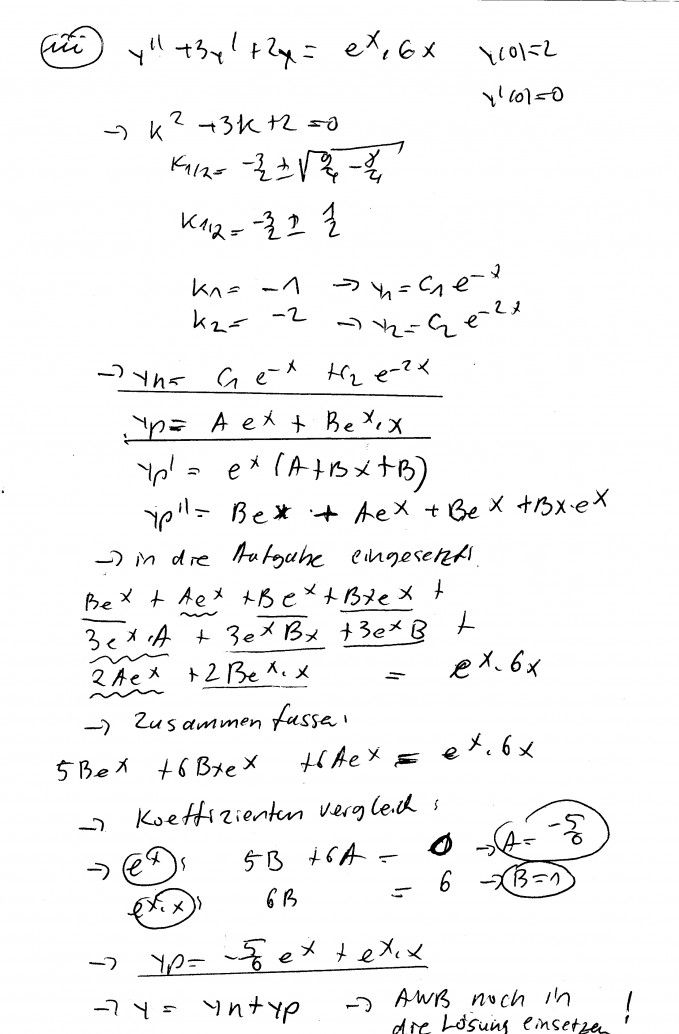 iii) y'' + 3y' + 2y = e^x · 6x   y(0)=2
y'(0)=0
→ k² + 3k + 2 = 0
k1/2 = -3/2 ± √(9/4 - 8/4)
k1/2 = -3/2 ± 1/2
k1 = -1 → y1 = C1 e^-x
k2 = -2 → y2 = C2 e^-2x
→ yh = C1 e^-x + C2 e^-2x
yp = A e^x + B e^x · x
yp' = e^x (A + Bx + B)
yp'' = Be^x + Ae^x + Be^x + Bx·e^x
→ in die Aufgabe eingesetzt:
Be^x + Ae^x + Be^x + Bxe^x +
3e^x · A + 3e^x Bx + 3e^x B +
2Ae^x + 2Be^x · x = e^x · 6x
→ Zusammenfassen:
5Be^x + 6Bxe^x + 6Ae^x = e^x · 6x
→ Koeffizientenvergleich:
→ e^x: 5B + 6A = 0 → A = -5/6
e^x · x: 6B = 6 → B = 1
→ yp = -5/6 e^x + e^x · x
→ y = yh + yp → AWB noch in
die Lösung einsetzen !